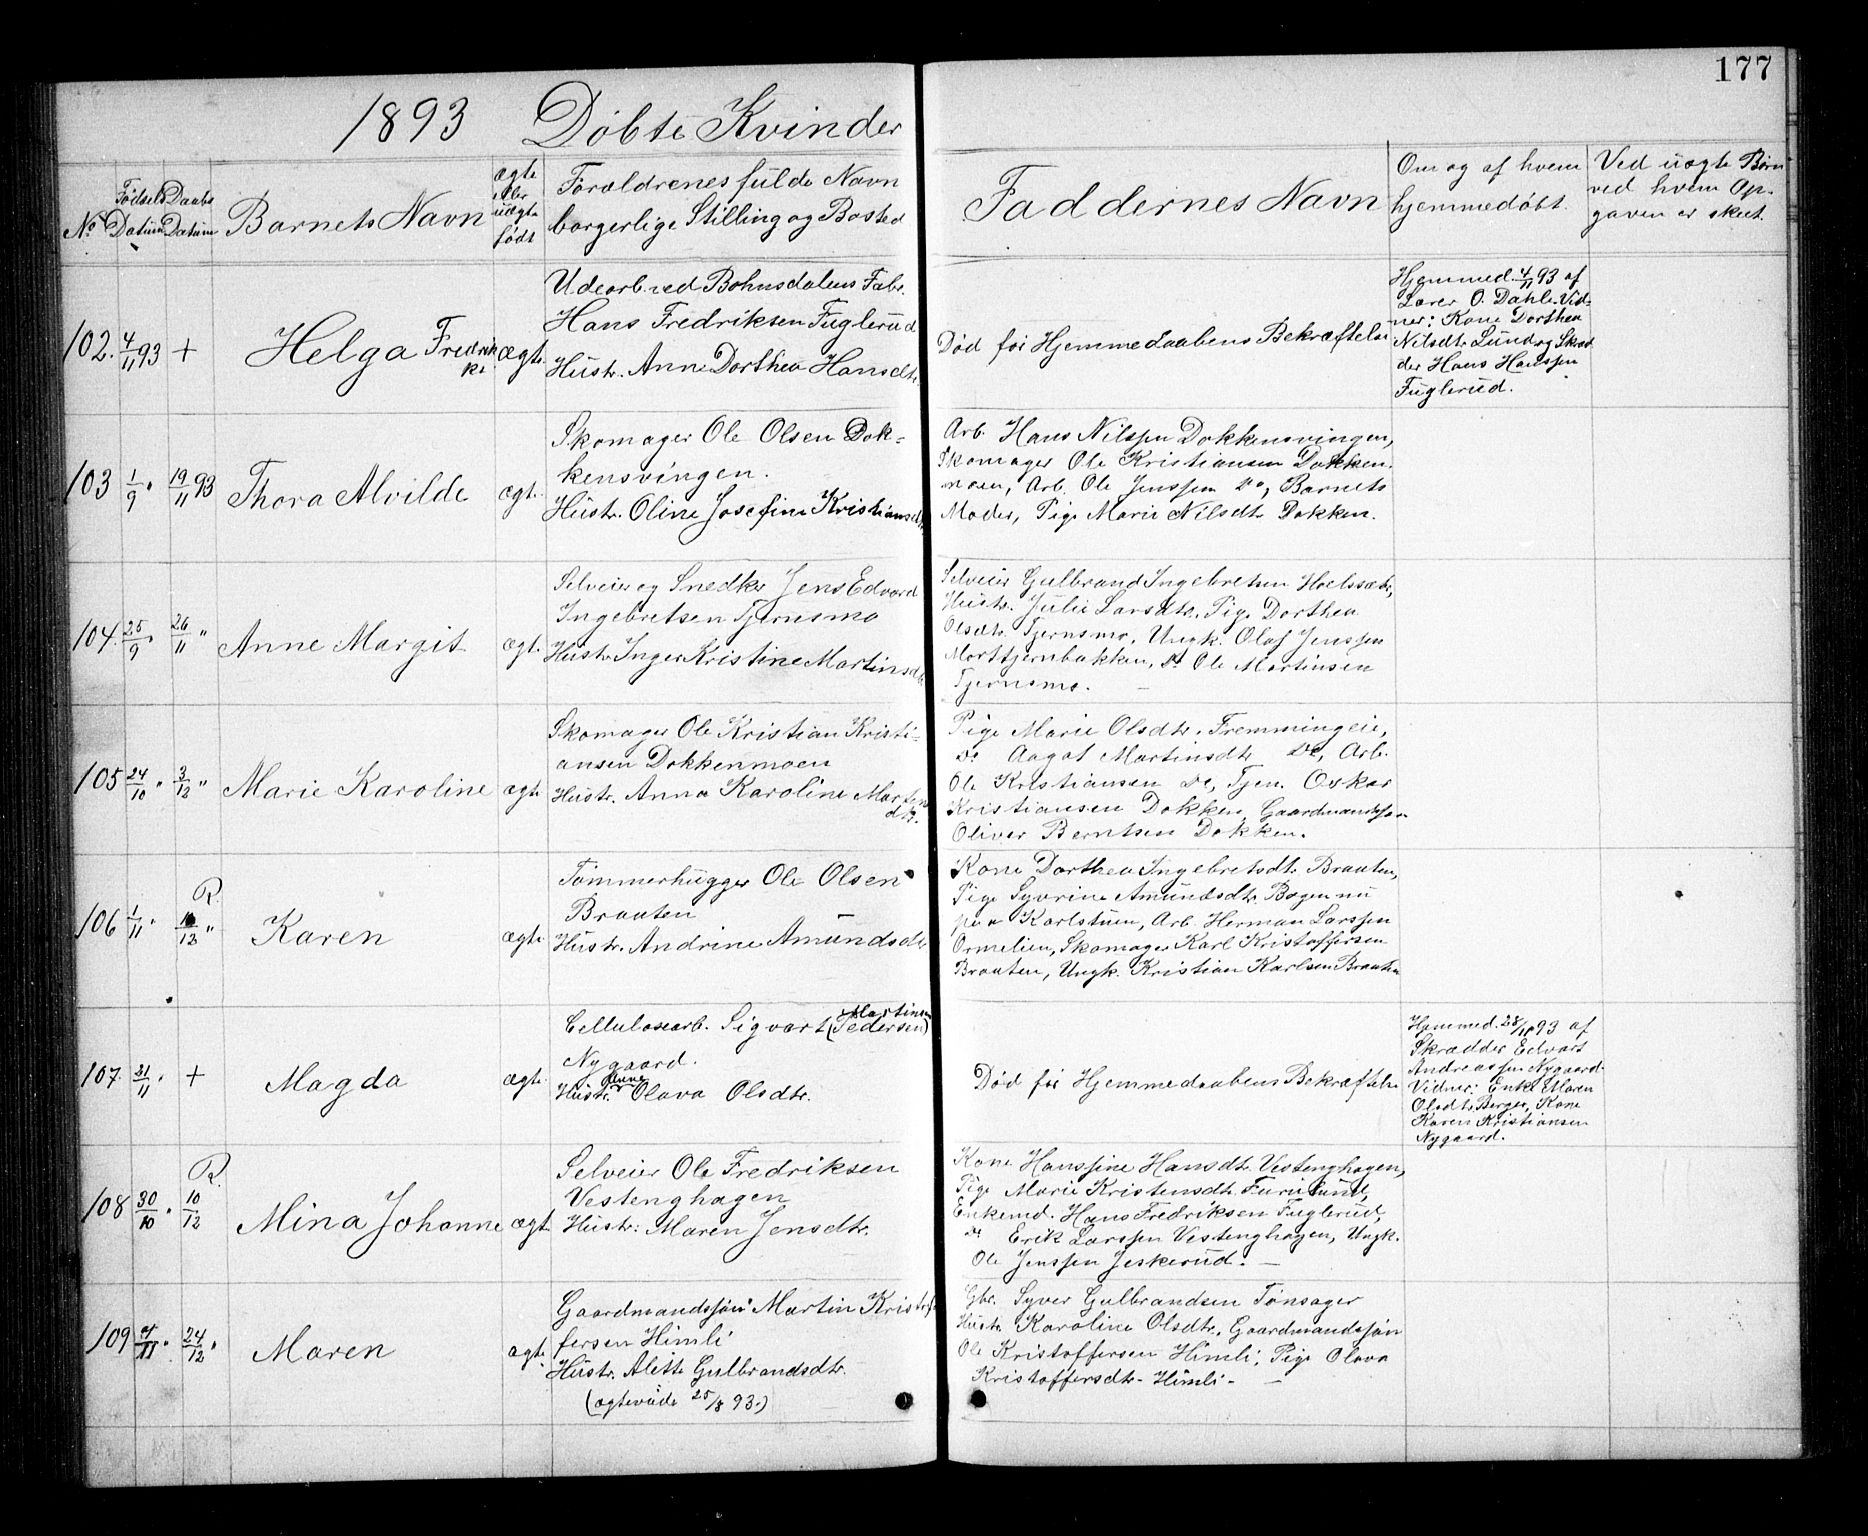 177
1893 Döbte Kvinder
No
Fødsels Datum
Daabs Datum
Barnets Navn
ægte eller uægte født
Forældrenes fulde Navn
borgerlige Stilling og Bosted
Faddernes Navn
Om og af hvem
hjemmedøbt.
Ved uægte Børn
ved hvem Op-
gaven er skeet.
102. 4/11 93 + Helga Fredrik-
ke
ægte
Udearb. ved Bohnsdalens Fabr.
Hans Fredriksen Fuglerud
Hustr. Anne Dorthea Hansdtr.
Død før Hjemmedaabens Bekræftelse
Hjemmed. 4/11 93 af
Lærer O. Dahl. Vid-
ner: Kone Dorthea
Nilsdtr. Lund og Skræd
der Hans Hanssen
Fuglerud.
103 1/9 " 19/11 93 Thora Alvilde
ægt.
Skomager Ole Olsen Dok-
kensvingen.
Hustr. Oline Josefine Kristiansdtr.
Arb. Hans Nilssen Dokkensvingen,
Skomager Ole Kristiansen Dokken-
moen, Arb. Ole Jenssen Do, Barnets
Moder, Pige Marie Nilsdtr. Dokken.
104. 25/9 " 26/11 " Anne Margit
ægt.
Selveier og Snedker Jens Edvard
Ingebretsen Tjernsmo
Hustr. Inger Kristine Martinsdtr.
Selveier Gulbrand Ingebretsen Hoelssæte,
Hustr. Julie Larsdtr., Pige Dorthea
Olsdtr. Tjernsmo, Ungk. Olaf Jenssen
Morttjernbakken, Do Ole Martinsen
Tjernsmo. —
105 24/10 " 3/12 " Marie Karoline
ægte
Skomager Ole Kristian Kristi-
ansen Dokkenmoen
Hustr. Anna Karoline Martins
dtr.
Pige Marie Olsdtr. Fremmingeie,
Do Aagot Martinsdtr. Do, Arb.
Ole Kristiansen Do, Tjen. Oskar
Kristiansen Dokken, Gaardmandssøn
Oliver Berntsen Dokken.
R.
106 1/11 " 10/12 " Karen
ægte
Tømmerhugger Ole Olsen
Braaten
Hustr. Andrine Amundsdtr
Kone Dorthea Ingebretsdtr. Braaten,
Pige Syverine Amundsdtr. Bagen nu
paa Karlstuen, Arb. Herman Larssen
Ormelien, Skomager Karl Kristoffersen
Braaten, Ungk. Kristian Karlsen Braaten
107. 21/11 " + Magda
ægte
Martinsen
Cellulosearb. Sigvart (Pedersen)
Nygaard.
Anne
Hustr. Olava Olsdtr.
Død før Hjemmedaabens Bekræftelse
Hjemmed. 28/11 93 af
Skrædder Edvart
Andreassen Nygaard.
Vidner: Enke Maren
Olsdtr. Berger, Kone
Karen Kristiansen
Nygaard.
R.
108 30/10 " 10/12 Mina Johanne
ægt.
Selveier Ole Fredriksen
Vestenghagen
Hustr: Maren Jensdtr.
Kone Hanssine Hansdtr. Vestenghagen,
Pige Marie Kristensdtr. Furulund,
Enkemd. Hans Fredriksen Fuglerud,
Do Erik Larssen Vestenghagen, Ungk.
Ole Jenssen Jeskerud. —
109 9/11 " 24/12 " Maren
ægte
Gaardmandssøn Martin Kristof
fersen Himli
Hustr. Alette Gulbrandsdtr.
(ægteviede 25/8 93.)
Gbr. Syver Gulbrandsen Tønsager
Hustr. Karoline Olsdtr., Gaardmandssøn
Ole Kristoffersen Himli, Pige Olava
Kristoffersdtr. Himli. —